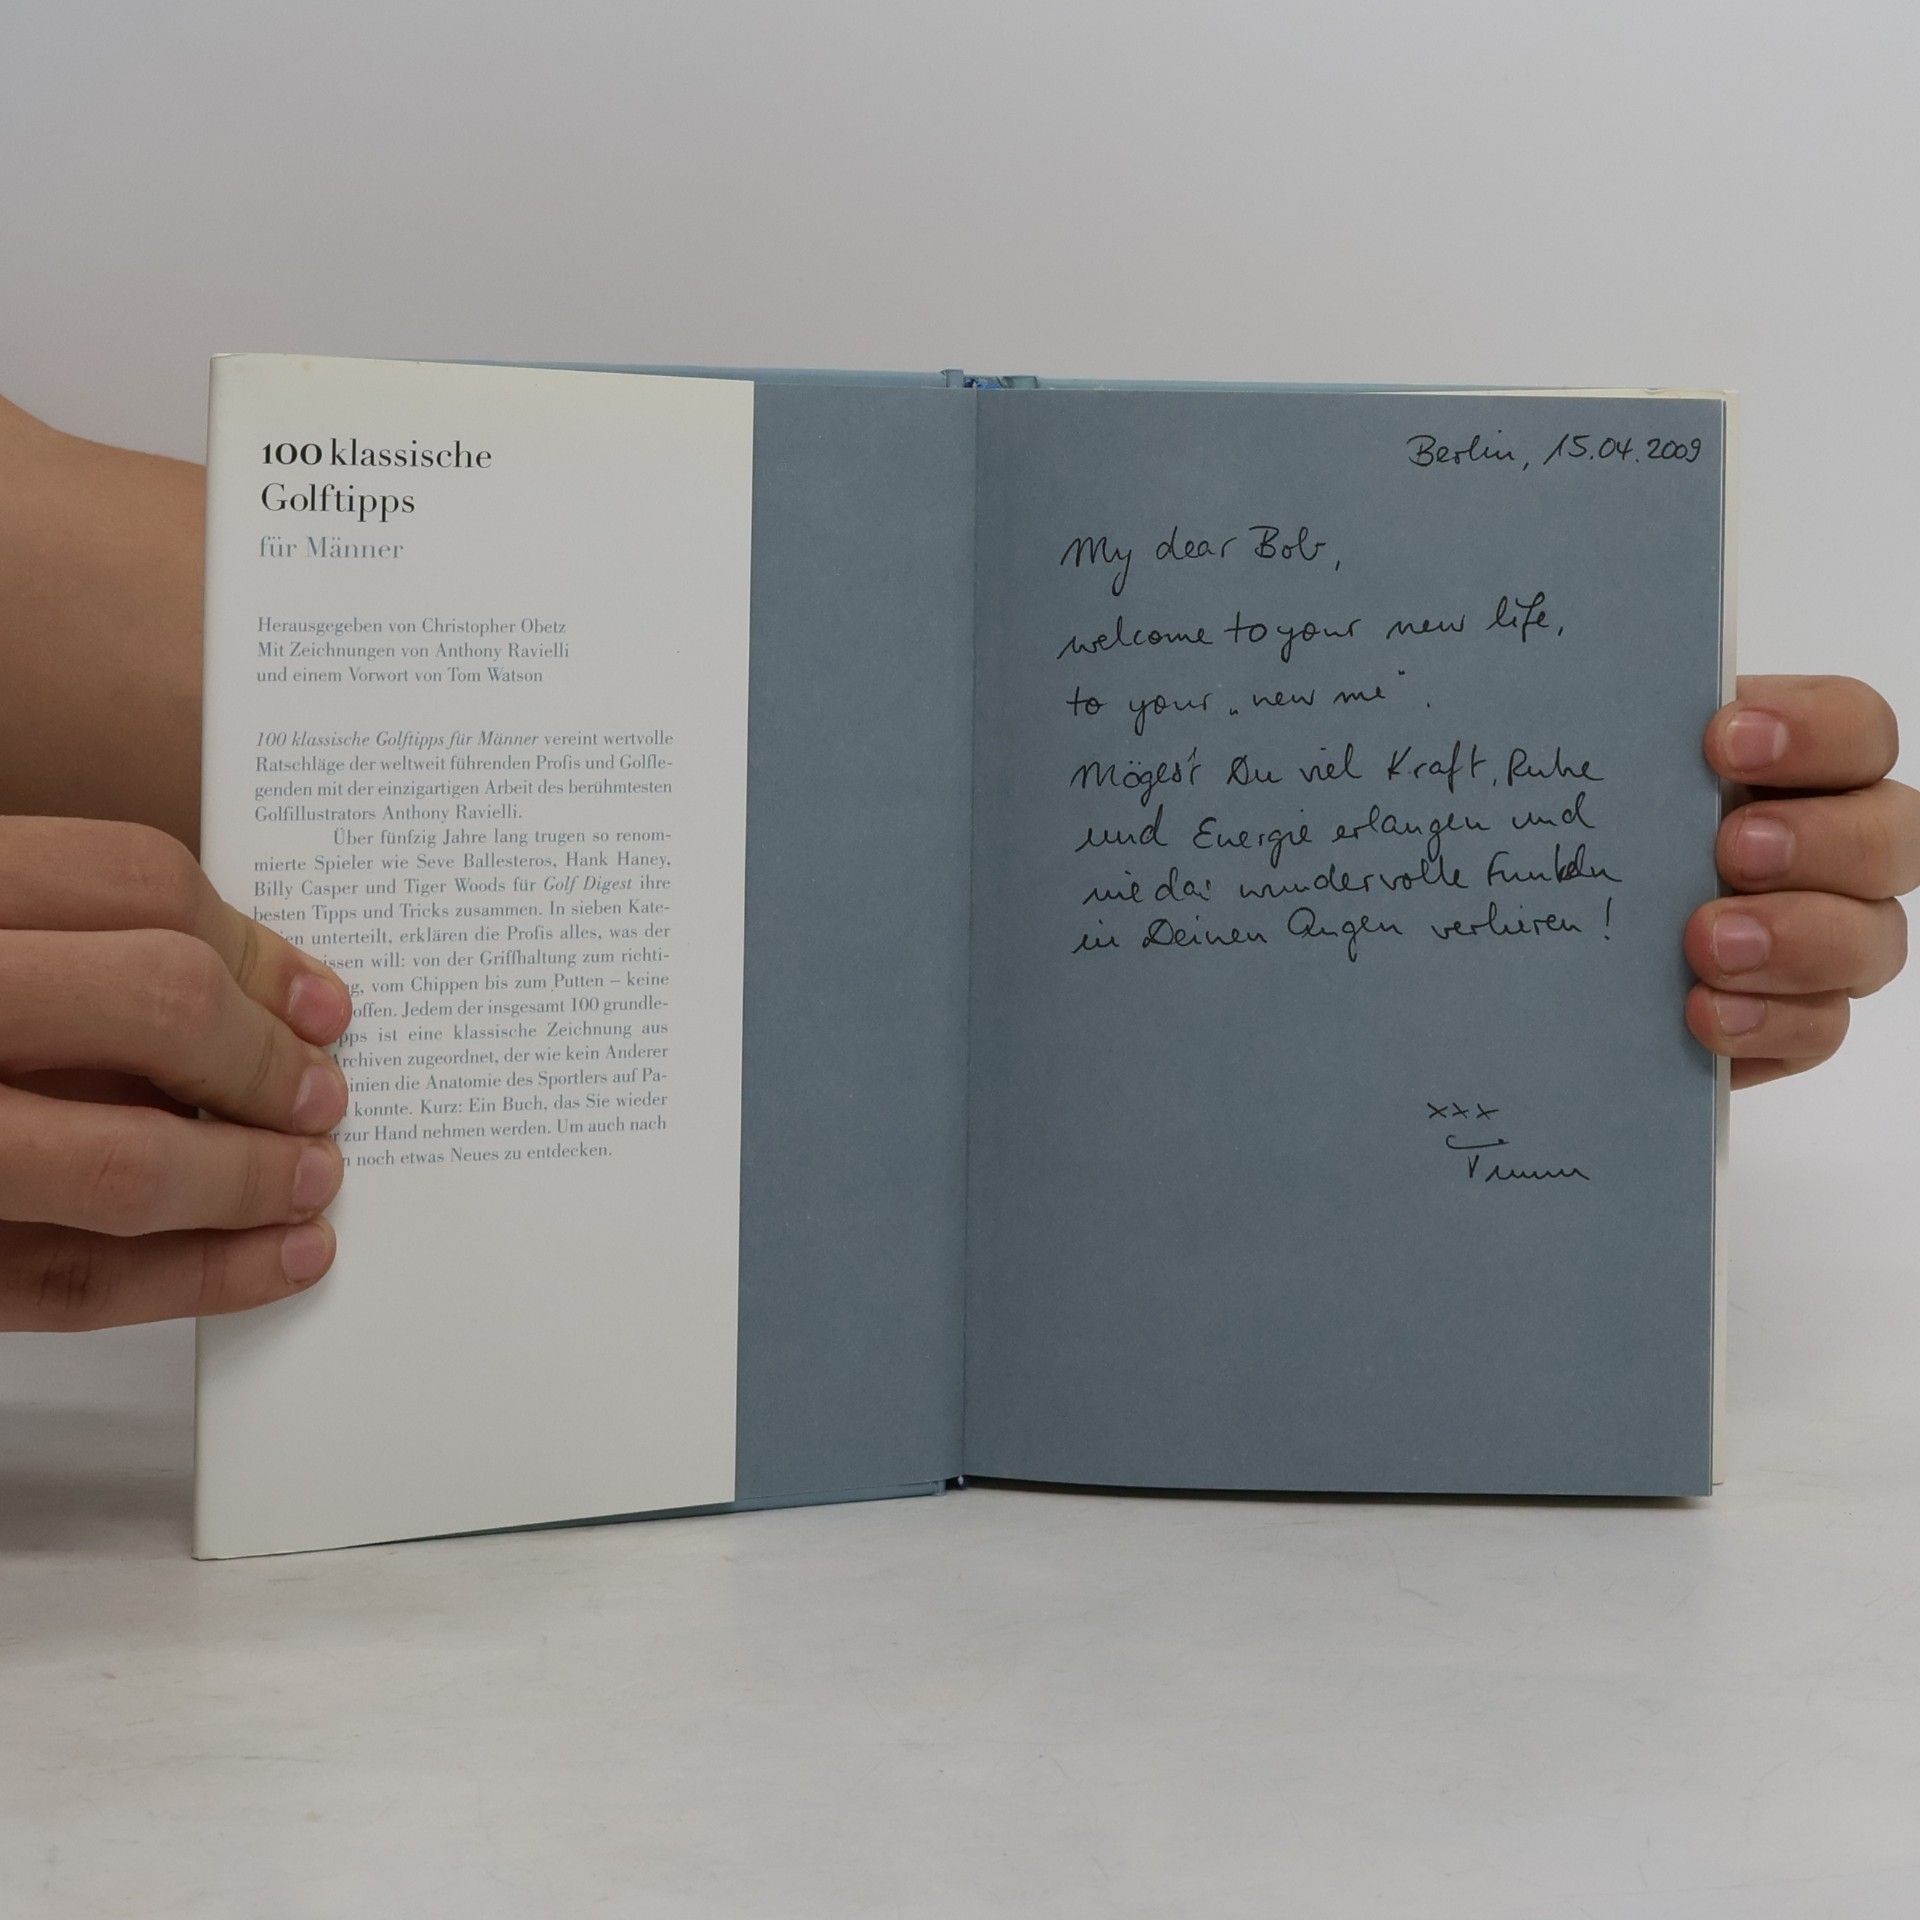 100 klassische
Golftipps
für Männer
Herausgegeben von Christopher Obetz
Mit Zeichnungen von Anthony Ravielli
und einem Vorwort von Tom Watson
100 klassische Golftipps für Männer vereint wertvolle
Ratschläge der weltweit führenden Profis und Golfle-
genden mit der einzigartigen Arbeit des berühmtesten
Golfillustrators Anthony Ravielli.
Über fünfzig Jahre lang trugen so renom-
mierte Spieler wie Seve Ballesteros, Hank Haney,
Billy Casper und Tiger Woods für Golf Digest ihre
besten Tipps und Tricks zusammen. In sieben Kate-
en unterteilt, erklären die Profis alles, was der
issen will: von der Griffhaltung zum richti-
g, vom Chippen bis zum Putten – keine
offen. Jedem der insgesamt 100 grundle-
pps ist eine klassische Zeichnung aus
Archiven zugeordnet, der wie kein Anderer
inien die Anatomie des Sportlers auf Pa-
konnte. Kurz: Ein Buch, das Sie wieder
r zur Hand nehmen werden. Um auch nach
n noch etwas Neues zu entdecken.
Berlin, 15.04.2009
My dear Bob,
welcome to your new life,
to your „new me".
Mögest Du viel Kraft, Ruhe
und Energie erlangen und
nie das wundervolle Funkeln
in Deinen Augen verlieren!
xxx